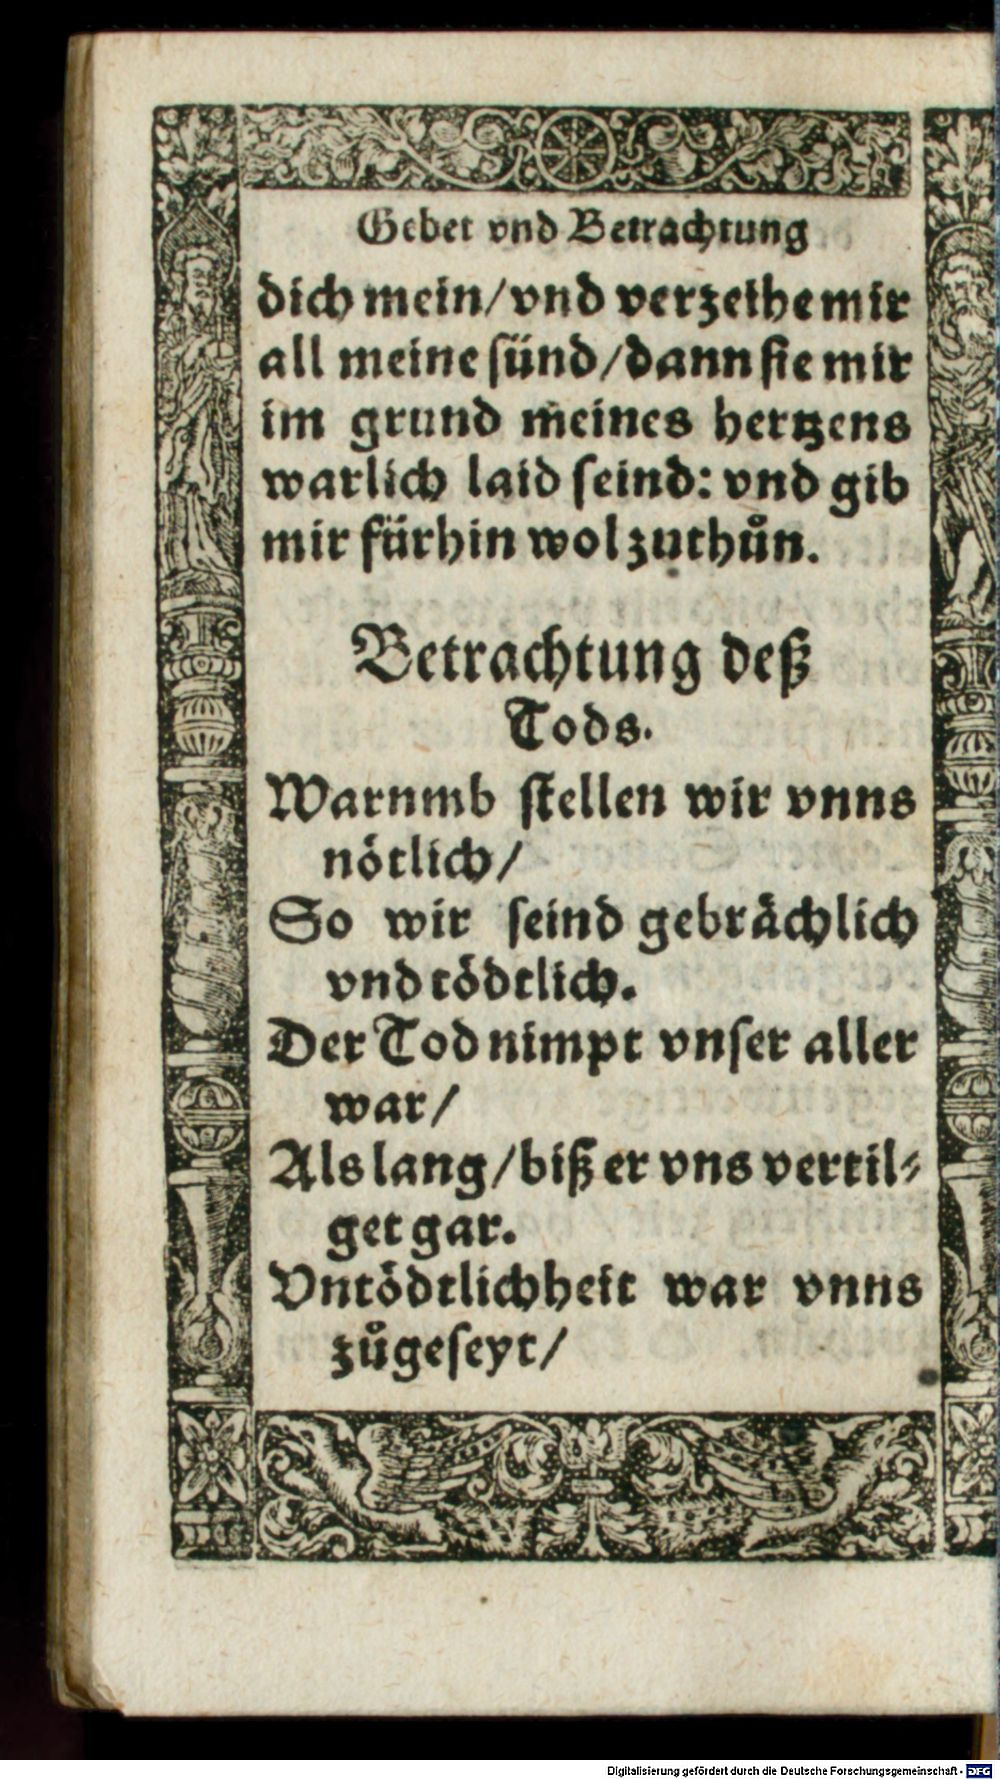 Gebet vnd Betrachtung
dich mein/vnd verzeihe mir
all meine sünd/dann sie mir
im grund meines hertzens
warlich laid seind: vnd gib
mir fürhin wol zuthůn.
Betrachtung deß
Tods.
Warumb stellen wir vnns
nötlich/
So wir seind gebrächlich
vnd tödtlich.
Der Tod nimpt vnser aller
war/
Als lang/biß er vns vertil⸗
get gar.
Vntödtlichheit war vnns
zůgeseyt/
Digitalisierung gefördert durch die Deutsche Forschungsgemeinschaft - DFG